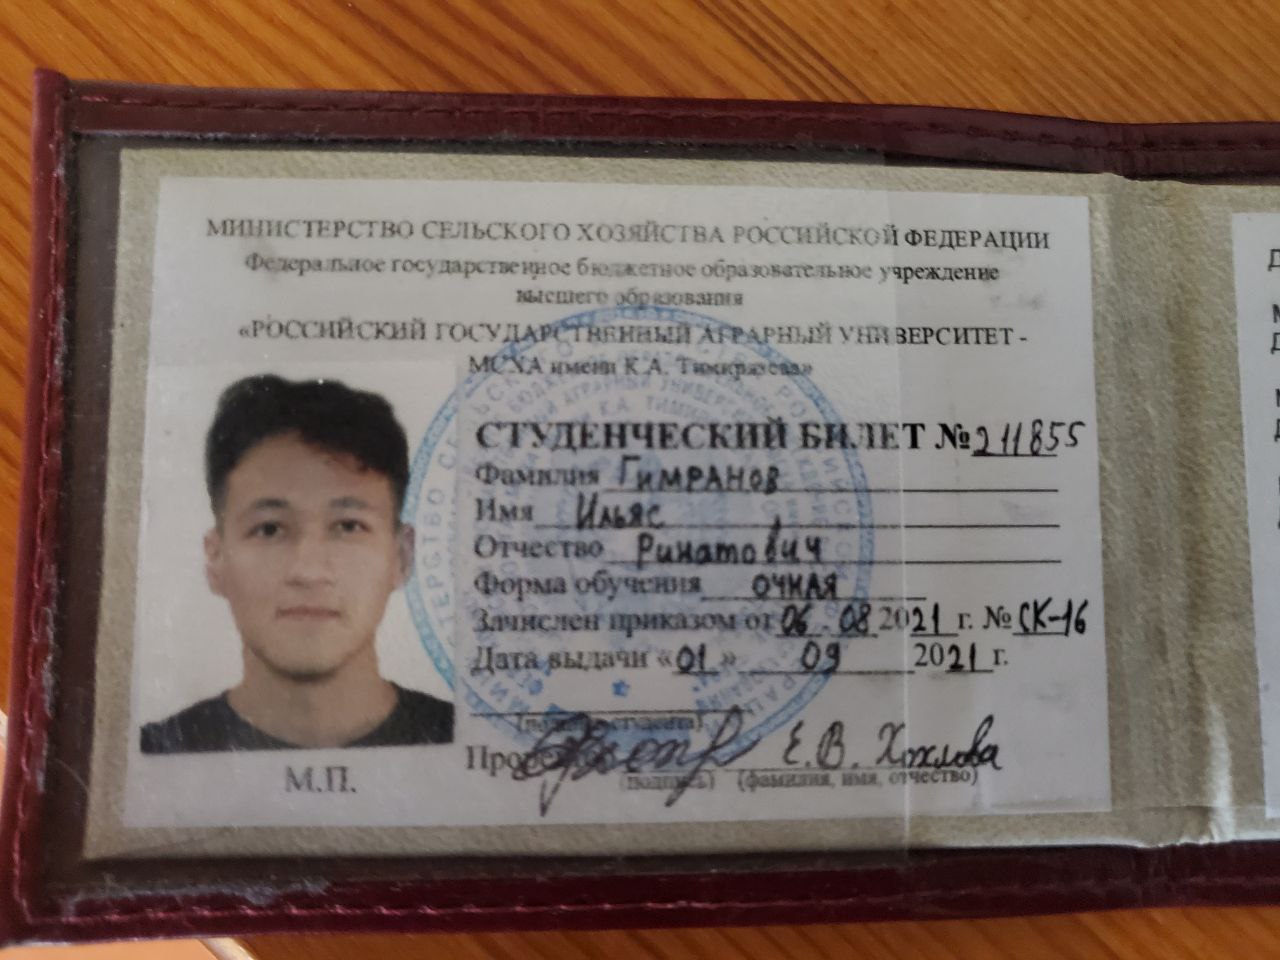 МИНИСТЕРСТВО СЕЛЬСКОГО ХОЗЯЙСТВА РОССИЙСКОЙ ФЕДЕРАЦИИ
Федеральное государственное бюджетное образовательное учреждение
высшего образования
«РОССИЙСКИЙ ГОСУДАРСТВЕННЫЙ АГРАРНЫЙ УНИВЕРСИТЕТ -
МСХА имени К.А. Тимирязева»
СТУДЕНЧЕСКИЙ БИЛЕТ № 211855
Фамилия Гимранов
Имя Ильяс
Отчество Ринатович
Форма обучения очная
Зачислен приказом от 06.08 2021 г. № СК-16
Дата выдачи «01» 09 2021 г.
(подпись студента)
Е.В. Хохлова
(подпись) (фамилия, имя, отчество)
М.П.